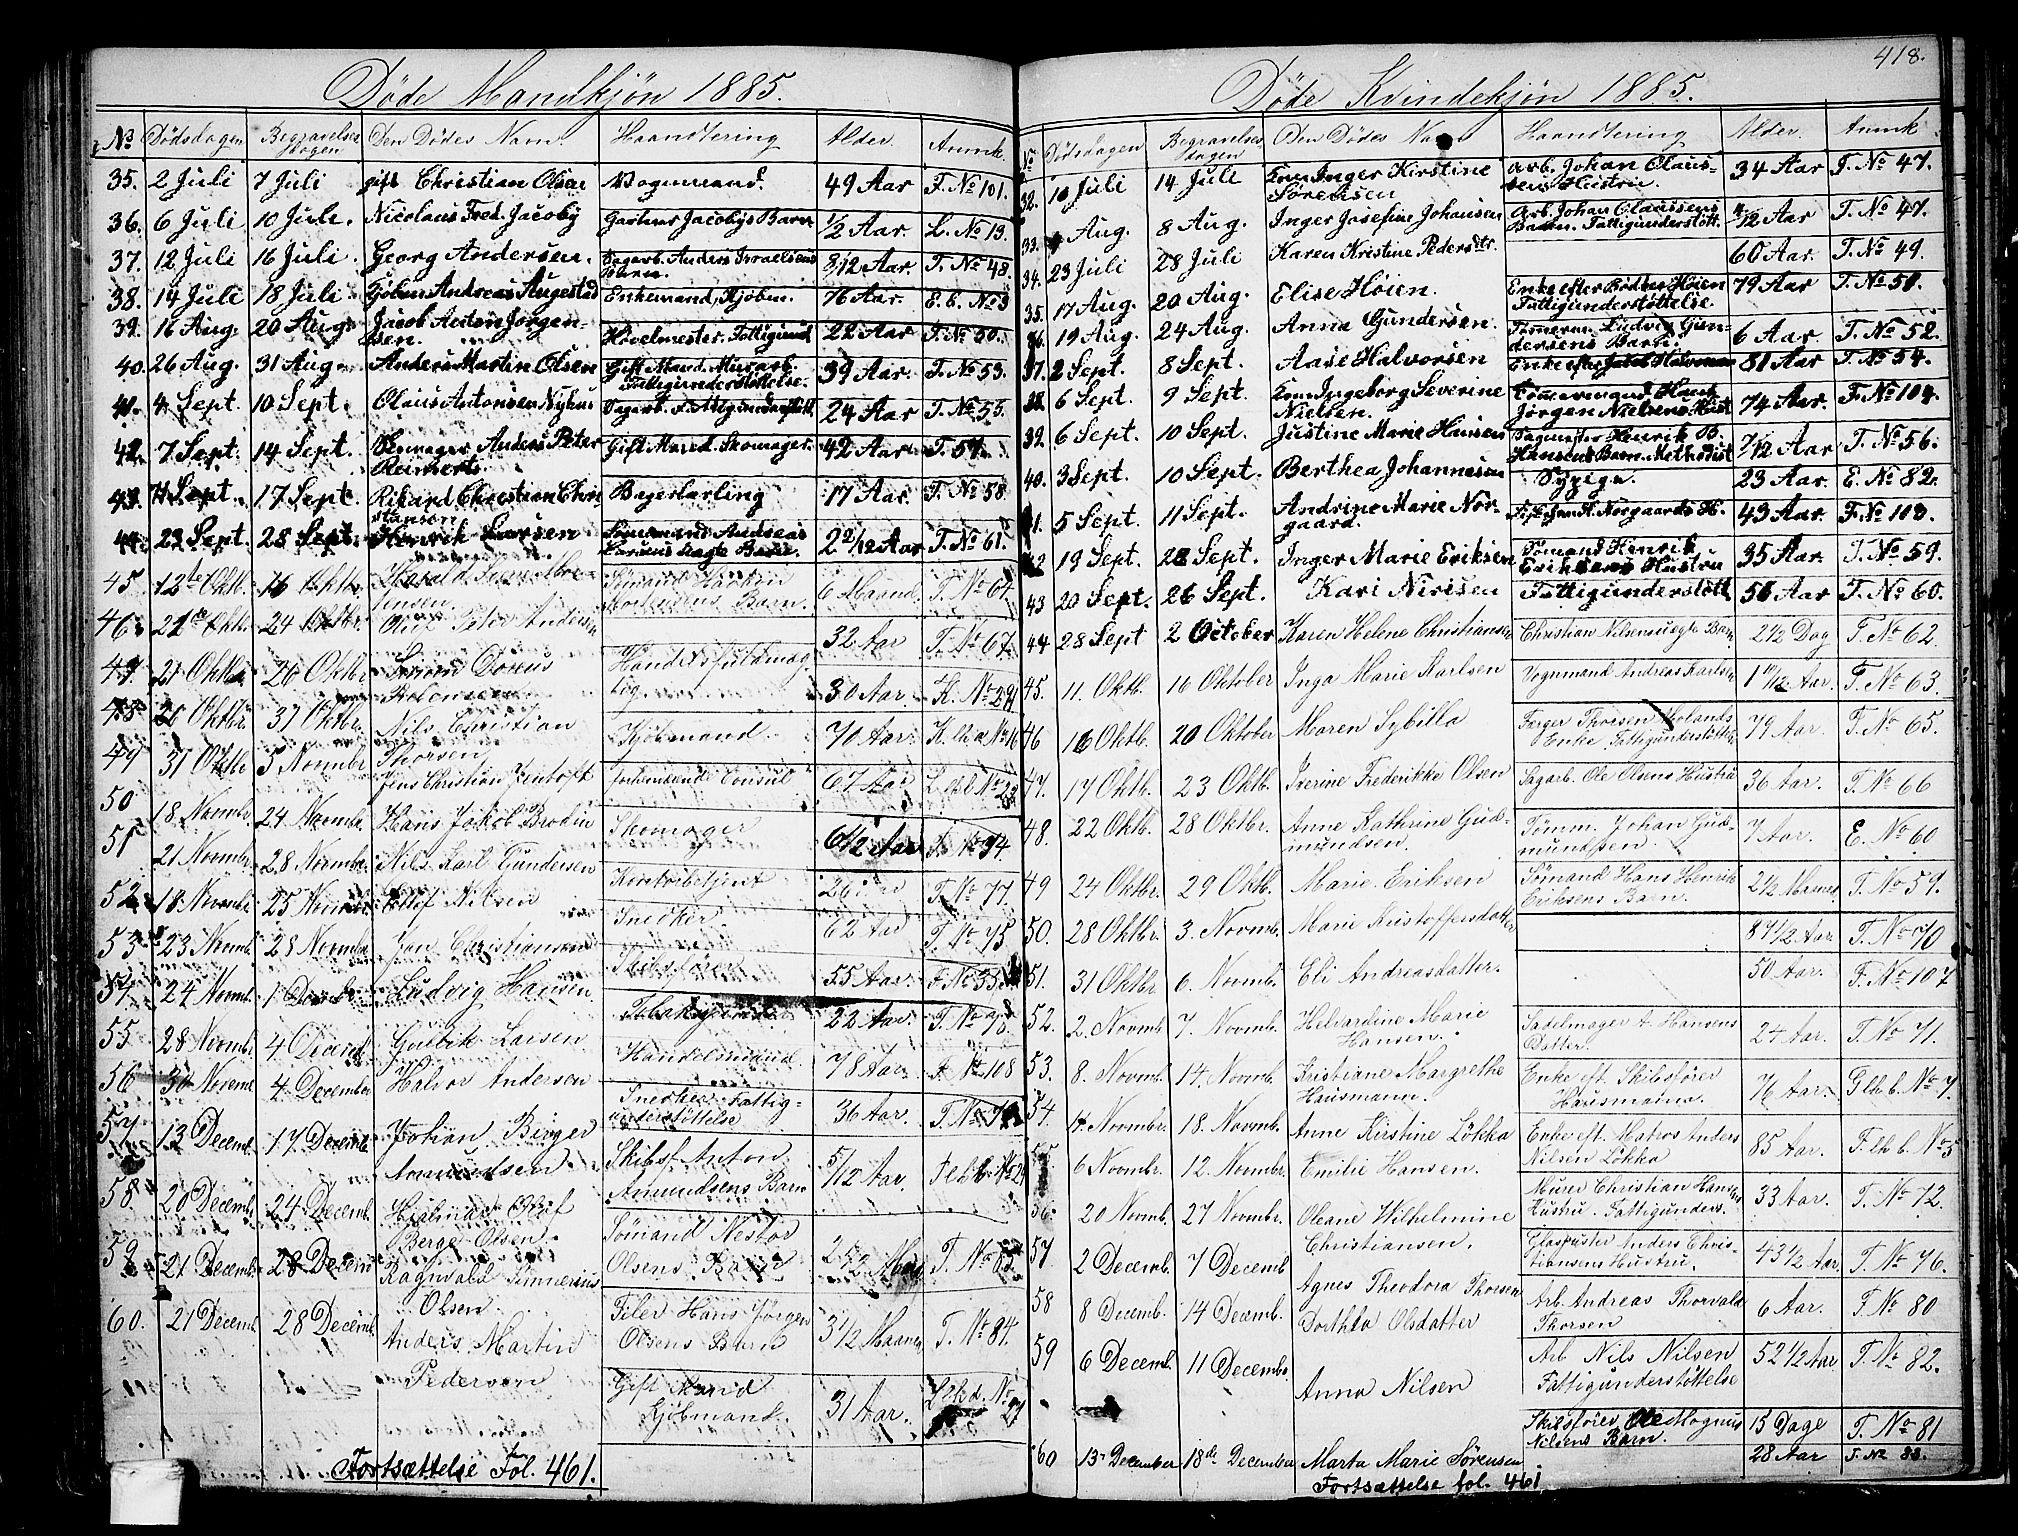 418.
Døde Mandkjøn 1885.
No Dødsdagen Begravelsesdagen Den Dødes Navn. Haandtering Alder. Anmk.
35. 2 Juli 7 Juli gift Christian Olsen Vognmand. 49 Aar F. No 101.
36. 6 Juli 10 Juli. Nicolaus Fred. Jacoby Gartner Jacobys Barn 1/2 Aar. L. No 13.
37. 12 Juli 16 Juli. Georg Andersen. Sagarb. Anders Israelsens Barn. 8/12 Aar. T. No 48.
38. 14 Juli 18 Juli. Kjøbm Andreas Augestad Enkemand, Kjøbm. 76 Aar. E. E. No 3
39. 16 Aug. 20 Aug. Jacob Anton Jørgensen. Høvelmester. Fattigund 22 Aar T. No 50.
40. 26 Aug. 31 Aug. Anders Martin Olsen Gift Mand Murarb. Fattigunderstøttelse. 39 Aar. T. No 53.
41. 4 Sept. 10 Sept. Olaus Antonsen Nyhus Sagarb. Fattigunderstøtt. 24 Aar T. No 55.
42. 7 Sept. 14 Sept. Skomager Anders Peter Reimerts Gift Mand Skomager. 42 Aar T. 57.
43. 11 Sept. 17 Sept. Rikard Christian Christiansen Bagerlærling 17 Aar. T. No 58
44. 23 Sept. 28 Sept. Henrik Larsen Sømmand Andreas Larsens uægte Barn. 2 2/12 Aar T. No 61.
45 12te Oktb. 16 Oktbr 6 Maand. T. No 64.
46. 21de Oktb. 24 Oktbr. Oluf Peter Andersen 32 Aar T. No 67.
47. 21 Oktbr 26 Oktbr. Handelsfuldmægtig 30 Aar. K. No 291
48. 26 Oktbr. 31 Oktbr. Nils Christian Thorsen Kjøbmand 70 Aar.
49 31 Oktbr 5 Novmbr Jens Christian Jentoft forhenværende Consul 67 Aar
50 18 Novmb. 24 Novmb. Hans Jakob Brodin Skomager 64 1/2 Aar F. No 94.
51 21 Novmbr. 28 Novmbr. Nils Karl Gundersen Kontorbetjent 26 Aar T. No 77.
52. 18 Novmb. 25 Novmbr Nilsen Snedker 62 Aar T. No 75.
53. 23 Novmb. 28 Novmbr Christiansen Skibsfører 55 Aar.
54 24 Novmb. 1 Decmb. Ludvig Hansen 22 Aar. T. No 78.
55 28 Novmbr 4 Decemb. Gulbik Larsen Handelsmand 78 Aar. F. No 108
56 30 Novemb. 4. December Halvor Andersen Snedker Fattigunderstøttelse 36 Aar.
57. 13 Decemb. 17 Decemb. Johan Birger Amundsen. Skibsf Anton Amundsens Barn 5/12 Aar.
58. 20 Decemb. 24 Decemb. Hjalmar Oluf Berge Olsen. Sømand Nestor Olsens Barn
59 21 Decemb. 28 Decemb Ragnvald Olsen. Feiler Hans Jørgen Olsens Barn 3 1/2 Maaned T. No 84.
60. 21 Decemb. 28 Decemb. Anders Martin Pedersen Gift Mand Kjøbmand. 31 Aar.
Fortsættelse Fol. 461.
Døde Kvindekjøn 1885.
No Dødsdagen Begravelsesdagen Den Dødes Navn Haandtering Alder. Anmk
32. 10 Juli 14 Juli Kone Inger Kirstine Sørensen Arb. Johan Olaussens Hustru. 34 Aar T. No 47.
33. Aug. 8 Aug. Inger Josefine Johansen Arb. Johan Olaussens Barn. Fattigunderstøtt. /12 Aar T. No 47.
34. 23 Juli 28 Juli Karen Kristine Pedersdtr. 60 Aar. T. No 49.
35. 17 Aug. 20 Aug. Elise Høien. Enke efter Høien Fattigunderstøttelse. 79 Aar T. No 51.
36. 19 Aug. 24 Aug. Anna Gundersen. Tømmerm. Ludvig Gundersens Barn. 6 Aar. T. No 52.
37. 2 Sept. 8 Sept. Aase Halvorsen Enke efter Jacob Halvorsen 81 Aar T. No 54.
38. 6 Sept. 9 Sept. Kone Ingeborg Severine Nielsen. Tømmermand Hans Jørgen Nielsens Hust 74 Aar. F. No 104.
39. 6 Sept. 10 Sept. Justine Marie Hansen Sagmester Henrik B. Hansens Barn. Methodist 7/12 Aar T. No 56.
40. 3 Sept. 10 Sept. Berthea Johannesen Sypige. 23 Aar. E. No 82.
41. 5 Sept. 11 Sept. Andrine Marie Norgaard. Norgaards H. 43 Aar. F. No 103.
42 19 Sept. 22 Sept. Inger Marie Eriksen Sømand Henrik Eriksens Hustru 35 Aar. T. No 59.
43 20 Sept. 26 Sept. Kari Nirisen Fattigunderstøtt 56 Aar T. No 60.
44 28 Sept 2 October Karen Helene Christiansen Christian Nilsens uegte Barn 2 1/2 Dag T. No 62
45. 11. Oktb. 16 Oktober Inga Marie Karlsen Vognmand Andreas Karlsen 1 10/12 Aar. T. No 63.
46 16 Oktb. 20 Oktober Maren Sybilla Færger Thorsen Molands Enke Fattigunderstøttelse 79 Aar. T. No 65.
47. 17 Oktb. 23 Oktb. Iverine Frederikke Olsen Sagarb. Ole Olsens Hustru 36 Aar. T. No 66
48. 22 Oktb. 28 Oktbr. Anne Kathrine Gudmundsen. Tømm. Johan Gudmundsen 7 Aar. E. No 60
49 24 Oktbr. 29 Oktb. Marie Eriksen Sømand Hans Henrik Eriksens Barn. 2 1/2 Maaned T. No 59.
50. 28 Oktbr. 3. Novmb. Marie Kristoffersdatter 87 1/2 Aar. T. No 70
51. 31 Oktbr 6. Novmb. Eli Andreasdatter. 50 Aar. F. No 107
52. 2. Novmb 7. Novmb. Helvardine Marie Hansen. Sadelmager A. Hansens Datter. 24 Aar. T. No 71.
53. 8. Novmb. 14. Novmb. Kristiane Margrethe Hausmann. Enke eft. Skibsfører Hausmann. 76 Aar.
54. 11 Novmbr. 18. Novmb. Anne Kirstine Løkka Enke eft. Matros Anders Nilsen Løkka 85 Aar.
55 6 Novmbr. 12. Novmbr. Emilie Hansen. Murer Christian Hansens Hustru. Fattigunders. 33 Aar. T. No 72.
56. 20 Novmb. 27 Novmbr. Oleane Wilhelmine Christiansen. Glasputster Anders Christiansens Hustru. 43 1/2 Aar. T. No 76.
57. 2 Decemb. 7 Decemb Agnes Theodora Thorsen Arb. Andreas Thorvald Thorsen 6 Aar. T. No 80
58 8 Decemb. 14 Decemb. Dorthea Olsdatter Arb Nils Nilsen Fattigunderstøttelse 52 1/2 Aar T. No 82.
59 6 Decemb. 11 Decembr Anna Nilsen Skibsfører Ole Magnus Nilsens Barn. 15 Dage T. No 81
60 13- December 18de December Marta Marie Sørensen 28 Aar T. No 83.
Fortsættelse fol. 461